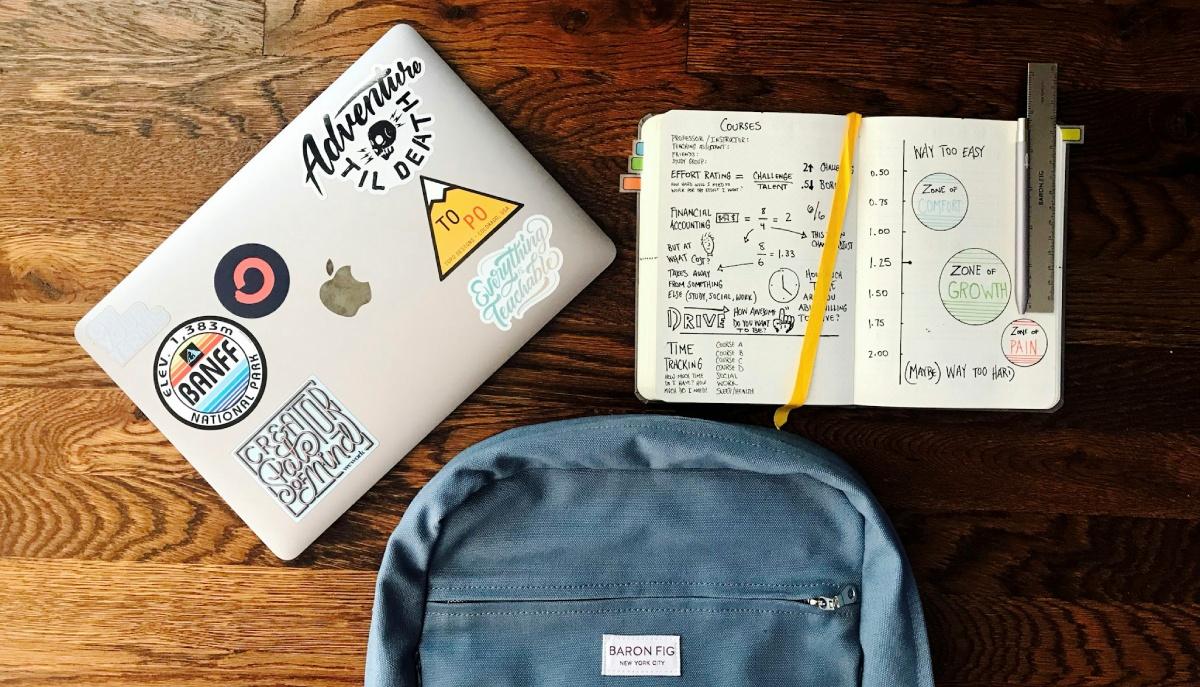 Adventure
'TIL DEATH
TO
PO
TOPO DESIGNS, COLORADO, USA
Everything
is
Teachable
ELEV. 1,383m
BANFF
NATIONAL PARK
CREATOR
State
OF Mind
wework
COURSES
PROFESSOR / INSTRUCTOR:
TEACHING ASSISTANT:
FRIENDS:
STUDY GROUP:
EFFORT RATING = CHALLENGE
TALENT
HOW HARD WILL I NEED TO
WORK FOR THE RESULT I WANT?
2↑
.5↓
FINANCIAL
ACCOUNTING = 8/4 = 2
6/6
THIS
BUT AT
WHAT COST?
8/6 = 1.33
TAKES AWAY
FROM SOMETHING
ELSE (STUDY, SOCIAL, WORK)
DRIVE
HOW AWESOME
DO YOU WANT
TO BE?
TIME
TRACKING
HOW MUCH TIME
DO I HAVE? HOW
MUCH DO I NEED?
COURSE A
COURSE B
COURSE C
COURSE D
SOCIAL
WORK
SLEEP/HEALTH
WAY TOO EASY
0.50
0.75
1.00
1.25
1.50
1.75
2.00
ZONE OF
COMFORT
ZONE OF
GROWTH
ZONE OF
PAIN
(MAYBE) WAY TOO HARD
BARON FIG
BARON FIG
NEW YORK CITY